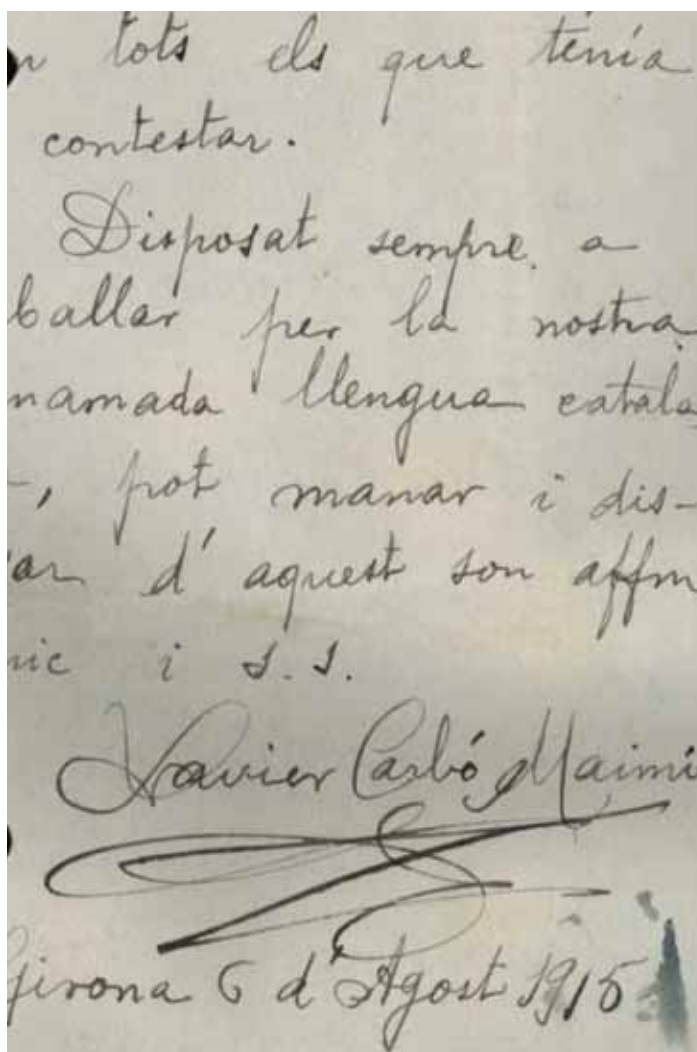 n tots els que tenía
contestar.
Disposat sempre a
ballar per la nostra
namada llengua catala
-, pot manar i dis-
ar d'aquest son affm
nic i s.s.
Xavier Carbó Maimí
Girona 6 d'Agost 1915